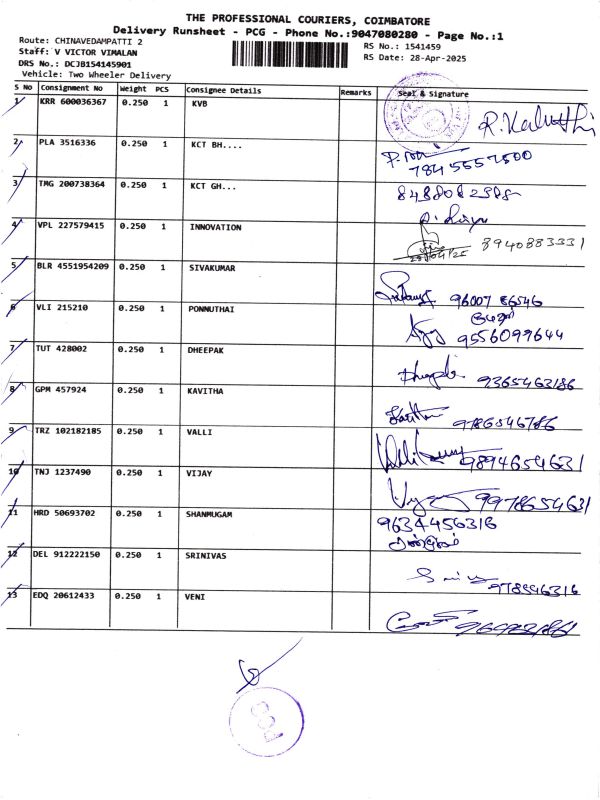 THE PROFESSIONAL COURIERS, COIMBATORE
Delivery Runsheet - PCG - Phone No.:9047080280 - Page No.:1
Route: CHINAVEDAMPATTI 2
RS No.: 1541459
Staff: V VICTOR VIMALAN
RS Date: 28-Apr-2025
DRS No.: DCJB154145901
Vehicle: Two Wheeler Delivery
S No Consignment No Weight PCS Consignee Details Remarks Seal & Signature
1 KRR 600036367 0.250 1 KVB
2 PLA 3516336 0.250 1 KCT BH....
7845557500
3 TMG 200738364 0.250 1 KCT GH...
4 VPL 227579415 0.250 1 INNOVATION
8940883331
5 BLR 4551954209 0.250 1 SIVAKUMAR
96007 86546
6 VLI 215210 0.250 1 PONNUTHAI
9556099644
7 TUT 428002 0.250 1 DHEEPAK
9365463186
8 GPM 457924 0.250 1 KAVITHA
9786546786
9 TRZ 102182185 0.250 1 VALLI
9894654631
10 TNJ 1237490 0.250 1 VIJAY
9978654631
11 HRD 50693702 0.250 1 SHANMUGAM
9634456316
12 DEL 912222150 0.250 1 SRINIVAS
13 EDQ 20612433 0.250 1 VENI